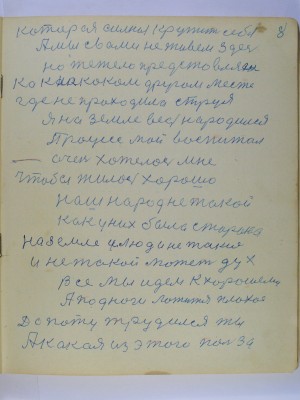 8
которая сильно крутит себя
А мы с вами не живем здеся
но тежело представляем
Ко на каком другом месте
где не проходила струя
Я на Земле весь народился
Процесс мой воспитал
— очен хотелося мне
Чтобы жилося хорошо
Наш народ не такой
Как у них была сторона
На земле и люди не такие
и не такой может дух
Все мы идем к хорошему
А под ноги ложится плохое
До поту трудился ты
А какая из этого польза